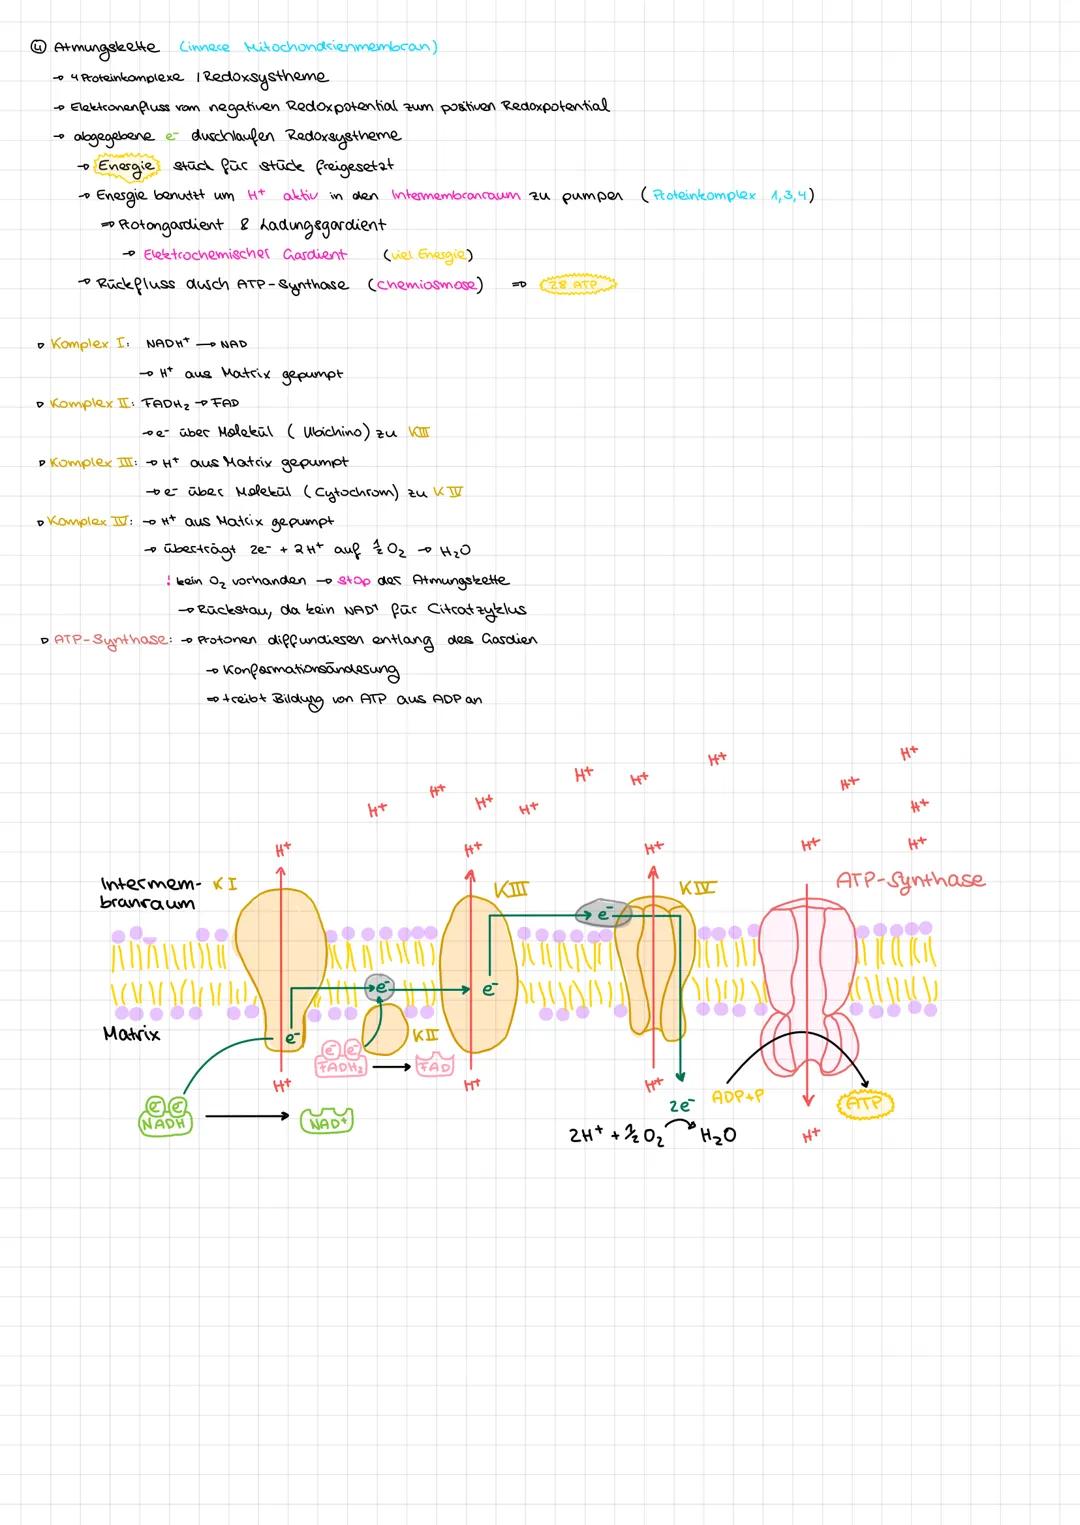 ④ Atmungskette (innere Mitochondrienmembran)
→ 4 Proteinkomplexe / Redoxsystheme
→ Elektronenfluss vom negativen Redoxpotential zum positiven Redoxpotential
→ abgegebene e⁻ durchlaufen Redoxsystheme
→ Energie stück für stück freigesetzt
→ Energie benutzt um H⁺ aktiv in den Intermembranraum zu pumpen (Proteinkomplex 1,3,4)
⇒ Protongardient & Ladungsgardient
→ Elektrochemischer Gardient (viel Energie)
→ Rückfluss durch ATP-Synthase (Chemiosmose) ⇒ 28 ATP
▷ Komplex I: NADH⁺ → NAD
→ H⁺ aus Matrix gepumpt
▷ Komplex II: FADH₂ → FAD
→ e⁻ über Molekül (Ubichino) zu KIII
▷ Komplex III: → H⁺ aus Matrix gepumpt
→ e⁻ über Molekül (Cytochrom) zu KIV
▷ Komplex IV: → H⁺ aus Matrix gepumpt
→ überträgt 2e⁻ + 2H⁺ auf ½O₂ → H₂O
! kein O₂ vorhanden → Stop der Atmungskette
→ Rückstau, da kein NAD⁺ für Citratzyklus
▷ ATP-Synthase: → Protonen diffundieren entlang des Gardien
→ Konformationsänderung
⇒ treibt Bildung von ATP aus ADP an
H⁺ H⁺
H⁺ H⁺ H⁺
H⁺ H⁺ H⁺ H⁺ H⁺
H⁺ H⁺ H⁺ H⁺ H⁺
Intermem- KI KIII KIV ATP-Synthase
branraum
e⁻
e⁻ e⁻
Matrix e⁻ KII
e⁻ e⁻
FADH₂ → FAD
H⁺ H⁺ H⁺
e⁻ e⁻ 2e⁻ ADP+P ATP
NADH → NAD⁺
2H⁺ + ½O₂ H₂O H⁺